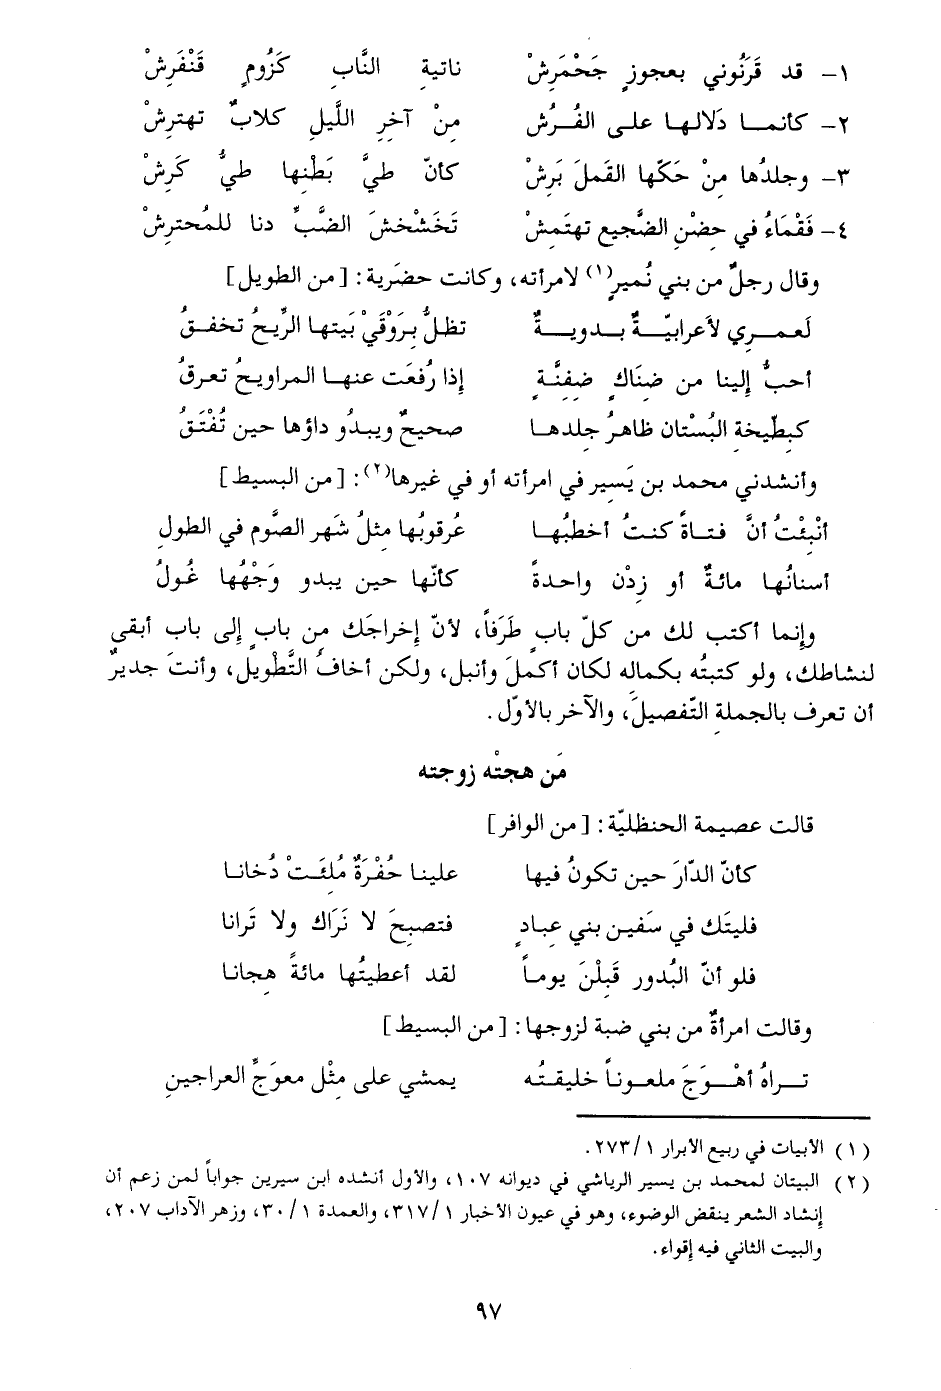 ١- قد قَرَنُوني بعجوزٍ جَحْمَرِشْ ناتية النَّابِ كَزُومٍ قَنْفَرِشْ
٢- كأنمـا دَلالهـا علـى الفُـرُش مِنْ آخرِ اللَّيلِ كلابٌ تهترشْ
٣- وجلدُها مِنْ حَكّها القملَ بَرِشْ كأنّ طيَّ بَطْنِها طيُّ كَرِشْ
٤- فَقْمَاءُ في حِضْنِ الضَّجيع تهتَمِشْ تَخَشْخشَ الضَّبِّ دنا للمُحترِشْ
وقال رجلٌ من بني نُميرٍ(١) لامرأته، وكانت حضَرية: [من الطويل]
لَعمـري لأعرابيّـةٌ بـدويـةٌ تظلُّ بِرَوْقَيْ بَيتها الرِّيحُ تخفقُ
أحبُّ إلينا من ضِنَاكٍ ضِفِنَّةٍ إذا رُفعَت عنهـا المراويحُ تعرقُ
كبطّيخةِ البُسْتان ظاهرُ جلدهـا صحيحٌ ويبدُو داؤها حين تُفْتَقُ
وأنشدني محمد بن يَسير في امرأته أو في غيرها(٢): [من البسيط]
أنْبِئْتُ أنَّ فتـاةً كنتُ أخطبُهـا عُرقوبُها مثلُ شَهر الصَّوم في الطول
أسنانُها مائةٌ أو زِدْن واحدةً كأنّها حين يبدو وَجْهُها غُولُ
وإنما أكتب لك من كلّ بابٍ طَرَفاً، لأنّ إخراجَك من بابٍ إلى باب أبقى
لنشاطك، ولو كتبتُه بكماله لكان أكملَ وأنبل، ولكن أخافُ التَّطويل، وأنتَ جديرٌ
أن تعرف بالجملةِ التّفصيلَ، والآخر بالأوّل.
مَن هجتْه زوجته
قالت عصيمة الحنظليّة: [من الوافر]
كأنّ الدّارَ حين تكونُ فيها علينا حُفْرَةٌ مُلِئَتْ دُخانا
فليتَك في سَفينِ بني عِبادٍ فتصبحَ لا نَرَاك ولا تَرانا
فلو أنّ البُدور قَبِلْنَ يومـاً لقد أعطيتُها مائةً هِجانا
وقالت امرأةٌ من بني ضبة لزوجها: [من البسيط]
تـراهُ أهْـوَجَ ملعونـاً خليقتُـه يمشي على مِثْل معوَجِّ العراجينِ
(١) الأبيات في ربيع الأبرار ١/ ٢٧٣.
(٢) البيتان لمحمد بن يسير الرياشي في ديوانه ١٠٧، والأول أنشده ابن سيرين جواباً لمن زعم أن
إنشاد الشعر ينقض الوضوء، وهو في عيون الأخبار ١/ ٣١٧، والعمدة ١/ ٣٠، وزهر الآداب ٢٠٧،
والبيت الثاني فيه إقواء.
٩٧